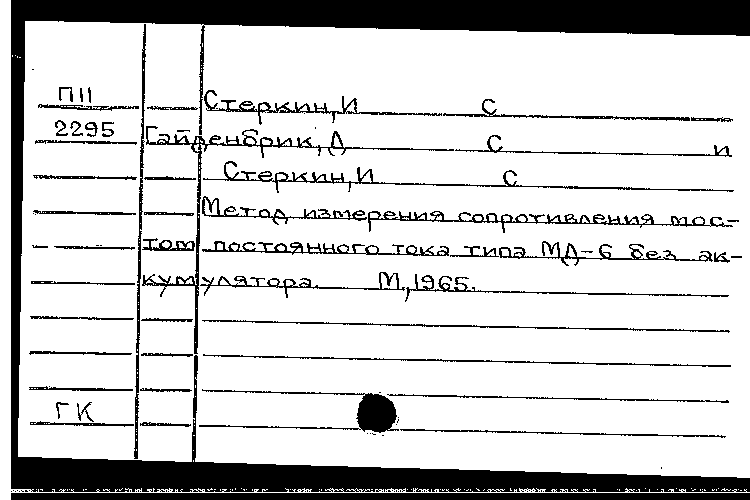 ПIII Стеркин, И С
2295 Гайденбрик, Д С и
Стеркин, И С
Метод измерения сопротивления мос-
том постоянного тока типа МД-6 без ак-
кумулятора. М, 1965.
ГК